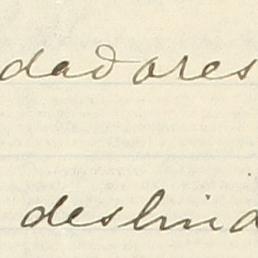 dadores
deslind